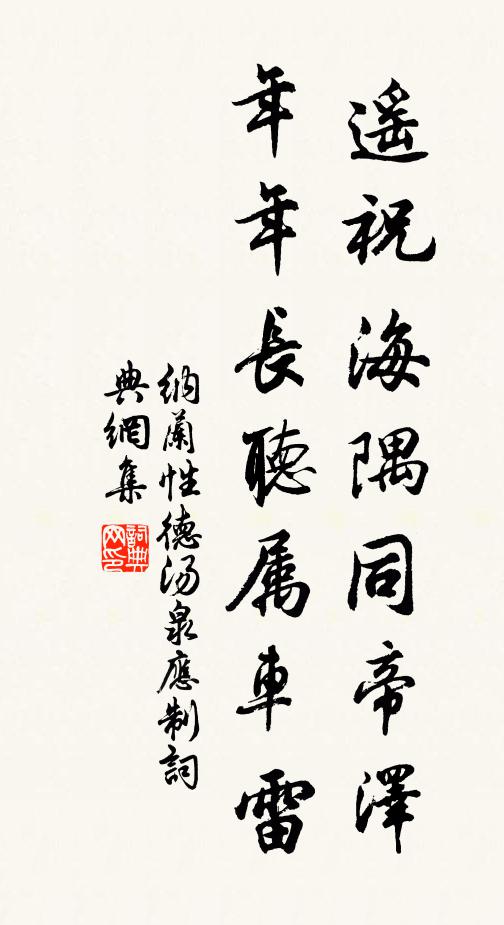 遥祝海隅同帝澤
年年長聽属車雷
納蘭性德湯泉應制詞
典網集
詞典網印